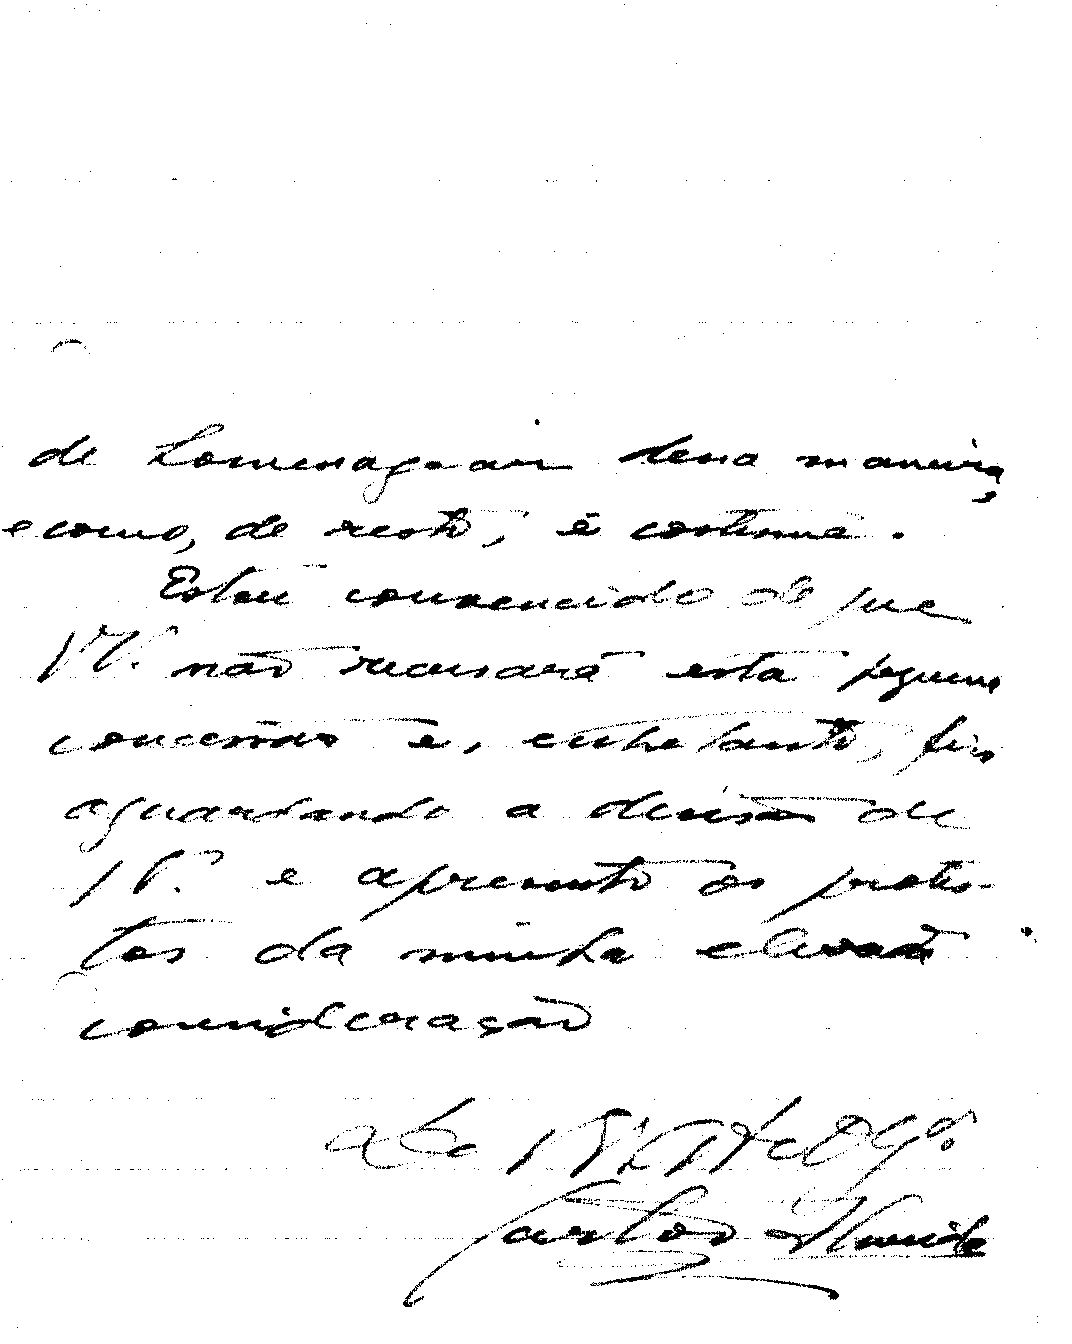 de homenagear dessa maneira,
e como, de resto, é costume.
Estou convencido de que
V. não recusará esta pequena
concessão e, entretanto, fico
aguardando a decisão de
V. e apresento os protes-
tos da minha elevada
consideração
Carlos